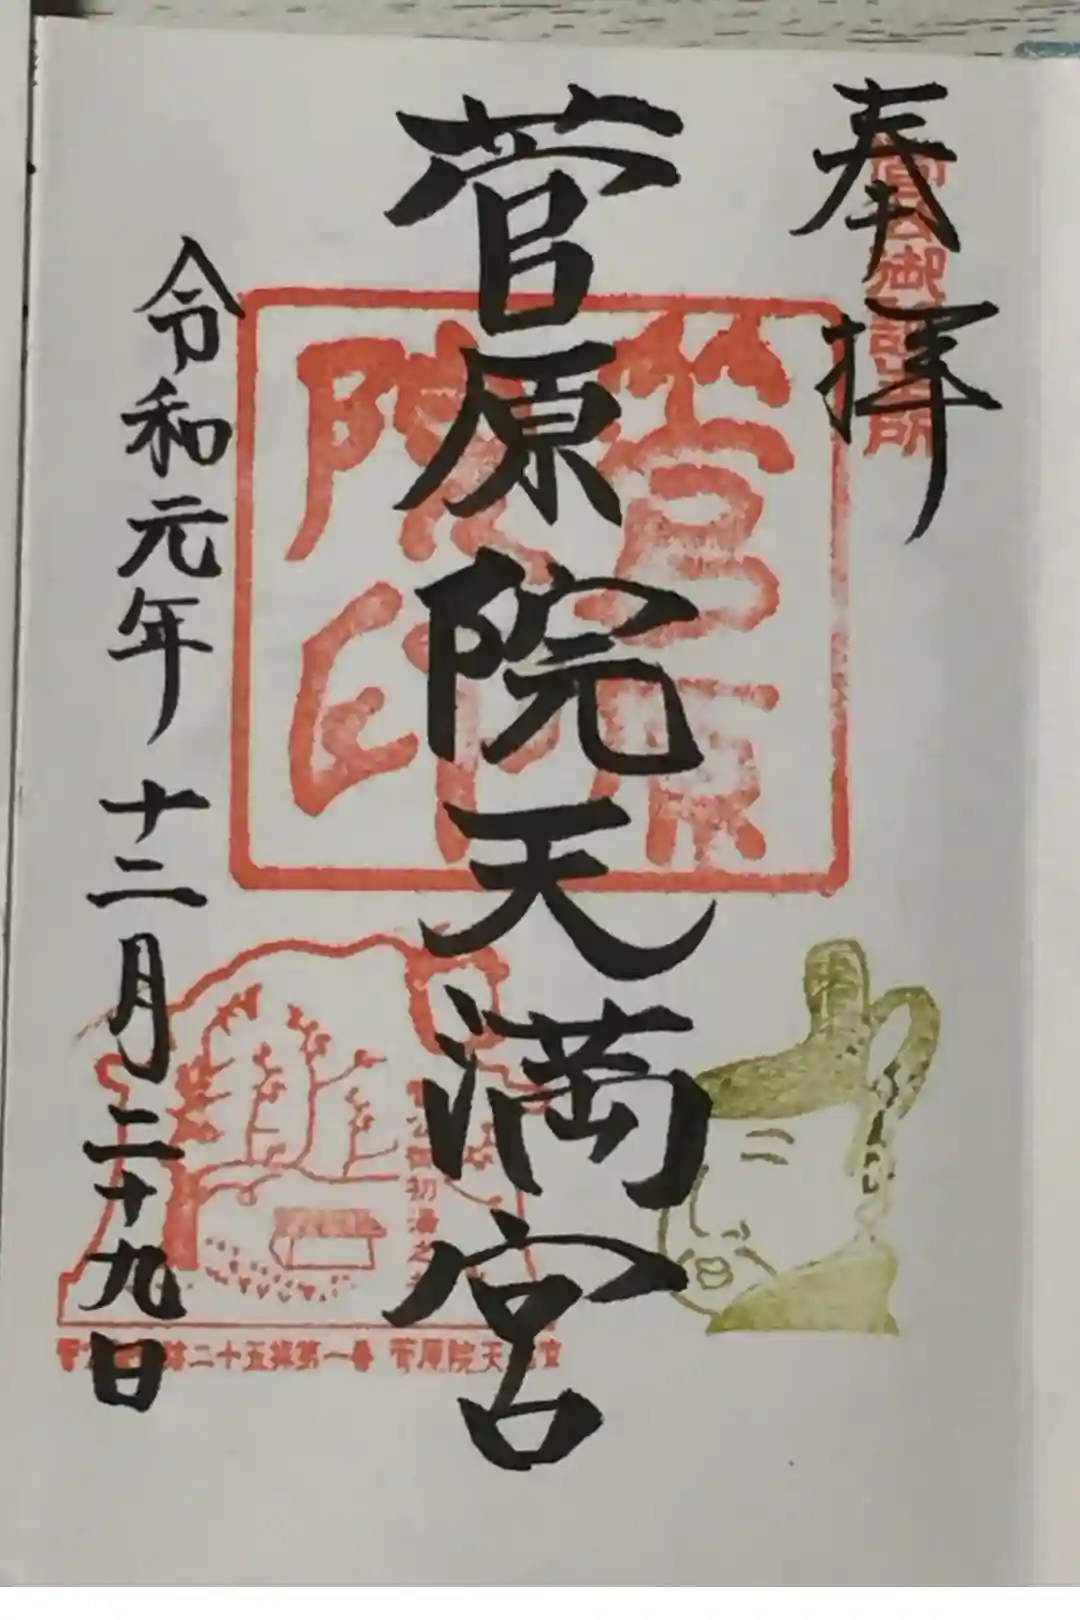 奉拝
菅公御誕生所
菅原院天満宮
菅原院印
令和元年十二月二十九日
初湯
二十五拝第一番 菅原院天